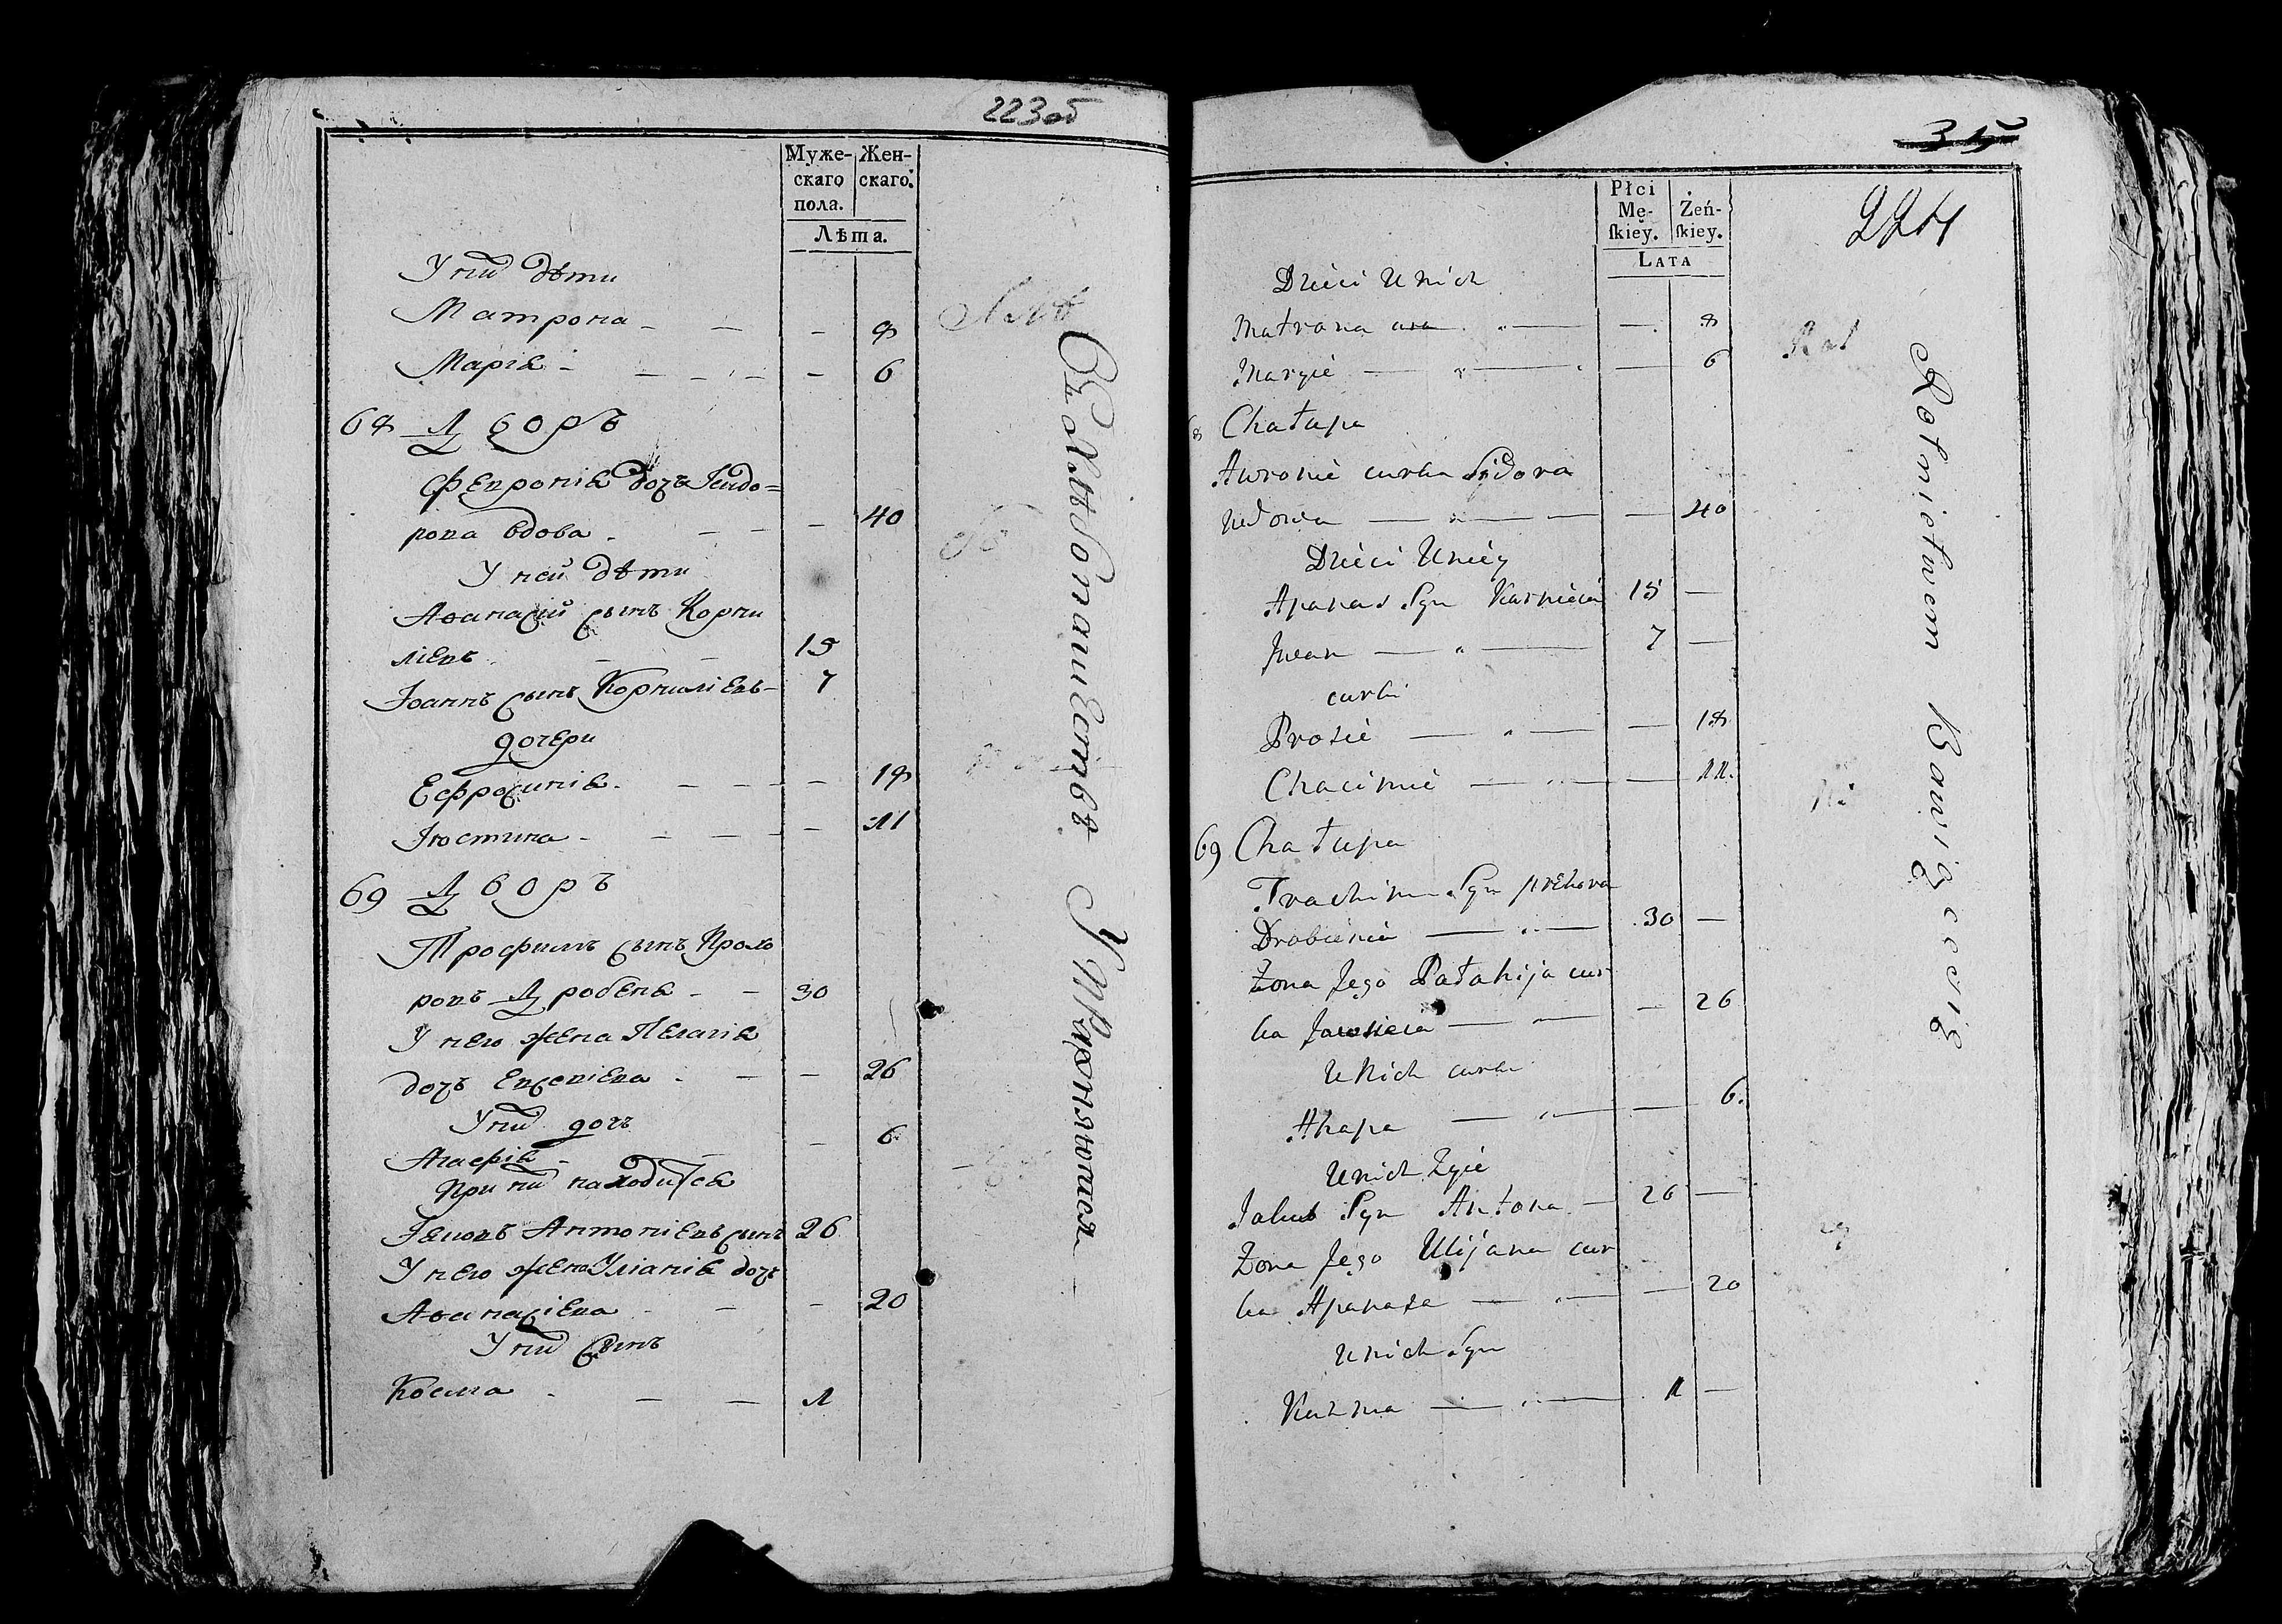 223об
Муже-
скаго
пола.
Жен-
скаго.
Лѣта.
У них дѣти
Матрона - — - 8
Марія - — - - - 6
68 Дворъ
Февронія дочь Исидо=
рова вдова - — - 40
У ней дѣти
Аѳанасій сынъ Корни
ліевъ - - 15
Іоаннъ сынъ Корниліевъ - 7
дочери
Ефросинія - — - - 18
Іюстина - - — - - 11
69 Дворъ
Трофимъ сынъ Прохо
ровъ Дробеня - - 30
У него жена Пелагія
дочь Евсевіева - — - 26
У них дочь
Агафія - — - 6
При них находится
Іаковъ Антоніевъ сынъ 26
У него жена Уліанія дочь
Аѳанасіева - — - 20
У них сынъ
Косма - — — 1
Въ хлѣбопашествѣ Упражняются —
Płci
Mę-
skiey.
Żeń-
skiey.
LATA
315
224
Dzieci Unich
Matrona — " — — 8
Maryie — " — — 6
8 Chałupa
Awronie curka Sydora
wdowa — " — — 40
Dzieci Uniey
Apanas Syn Karnieia 15 —
Jwan — " — 7 —
curki
Prosie — " — — 18
Chacimie — " — — 11.
69 Chałupa
Trachim Syn prehora
Drabienia — " — 30 —
Żona Jego Pałahija cur
ka Jawsieia — " — — 26
Unich curka
Ahapa — " — — 6.
Unich Żyie
Jakub Syn Antona — 26 —
Żona Jego Ulijana cur
ka Apanasa — " — — 20
Unich Syn
Kuzma — " — 1 —
Rolnictwem Bawią się